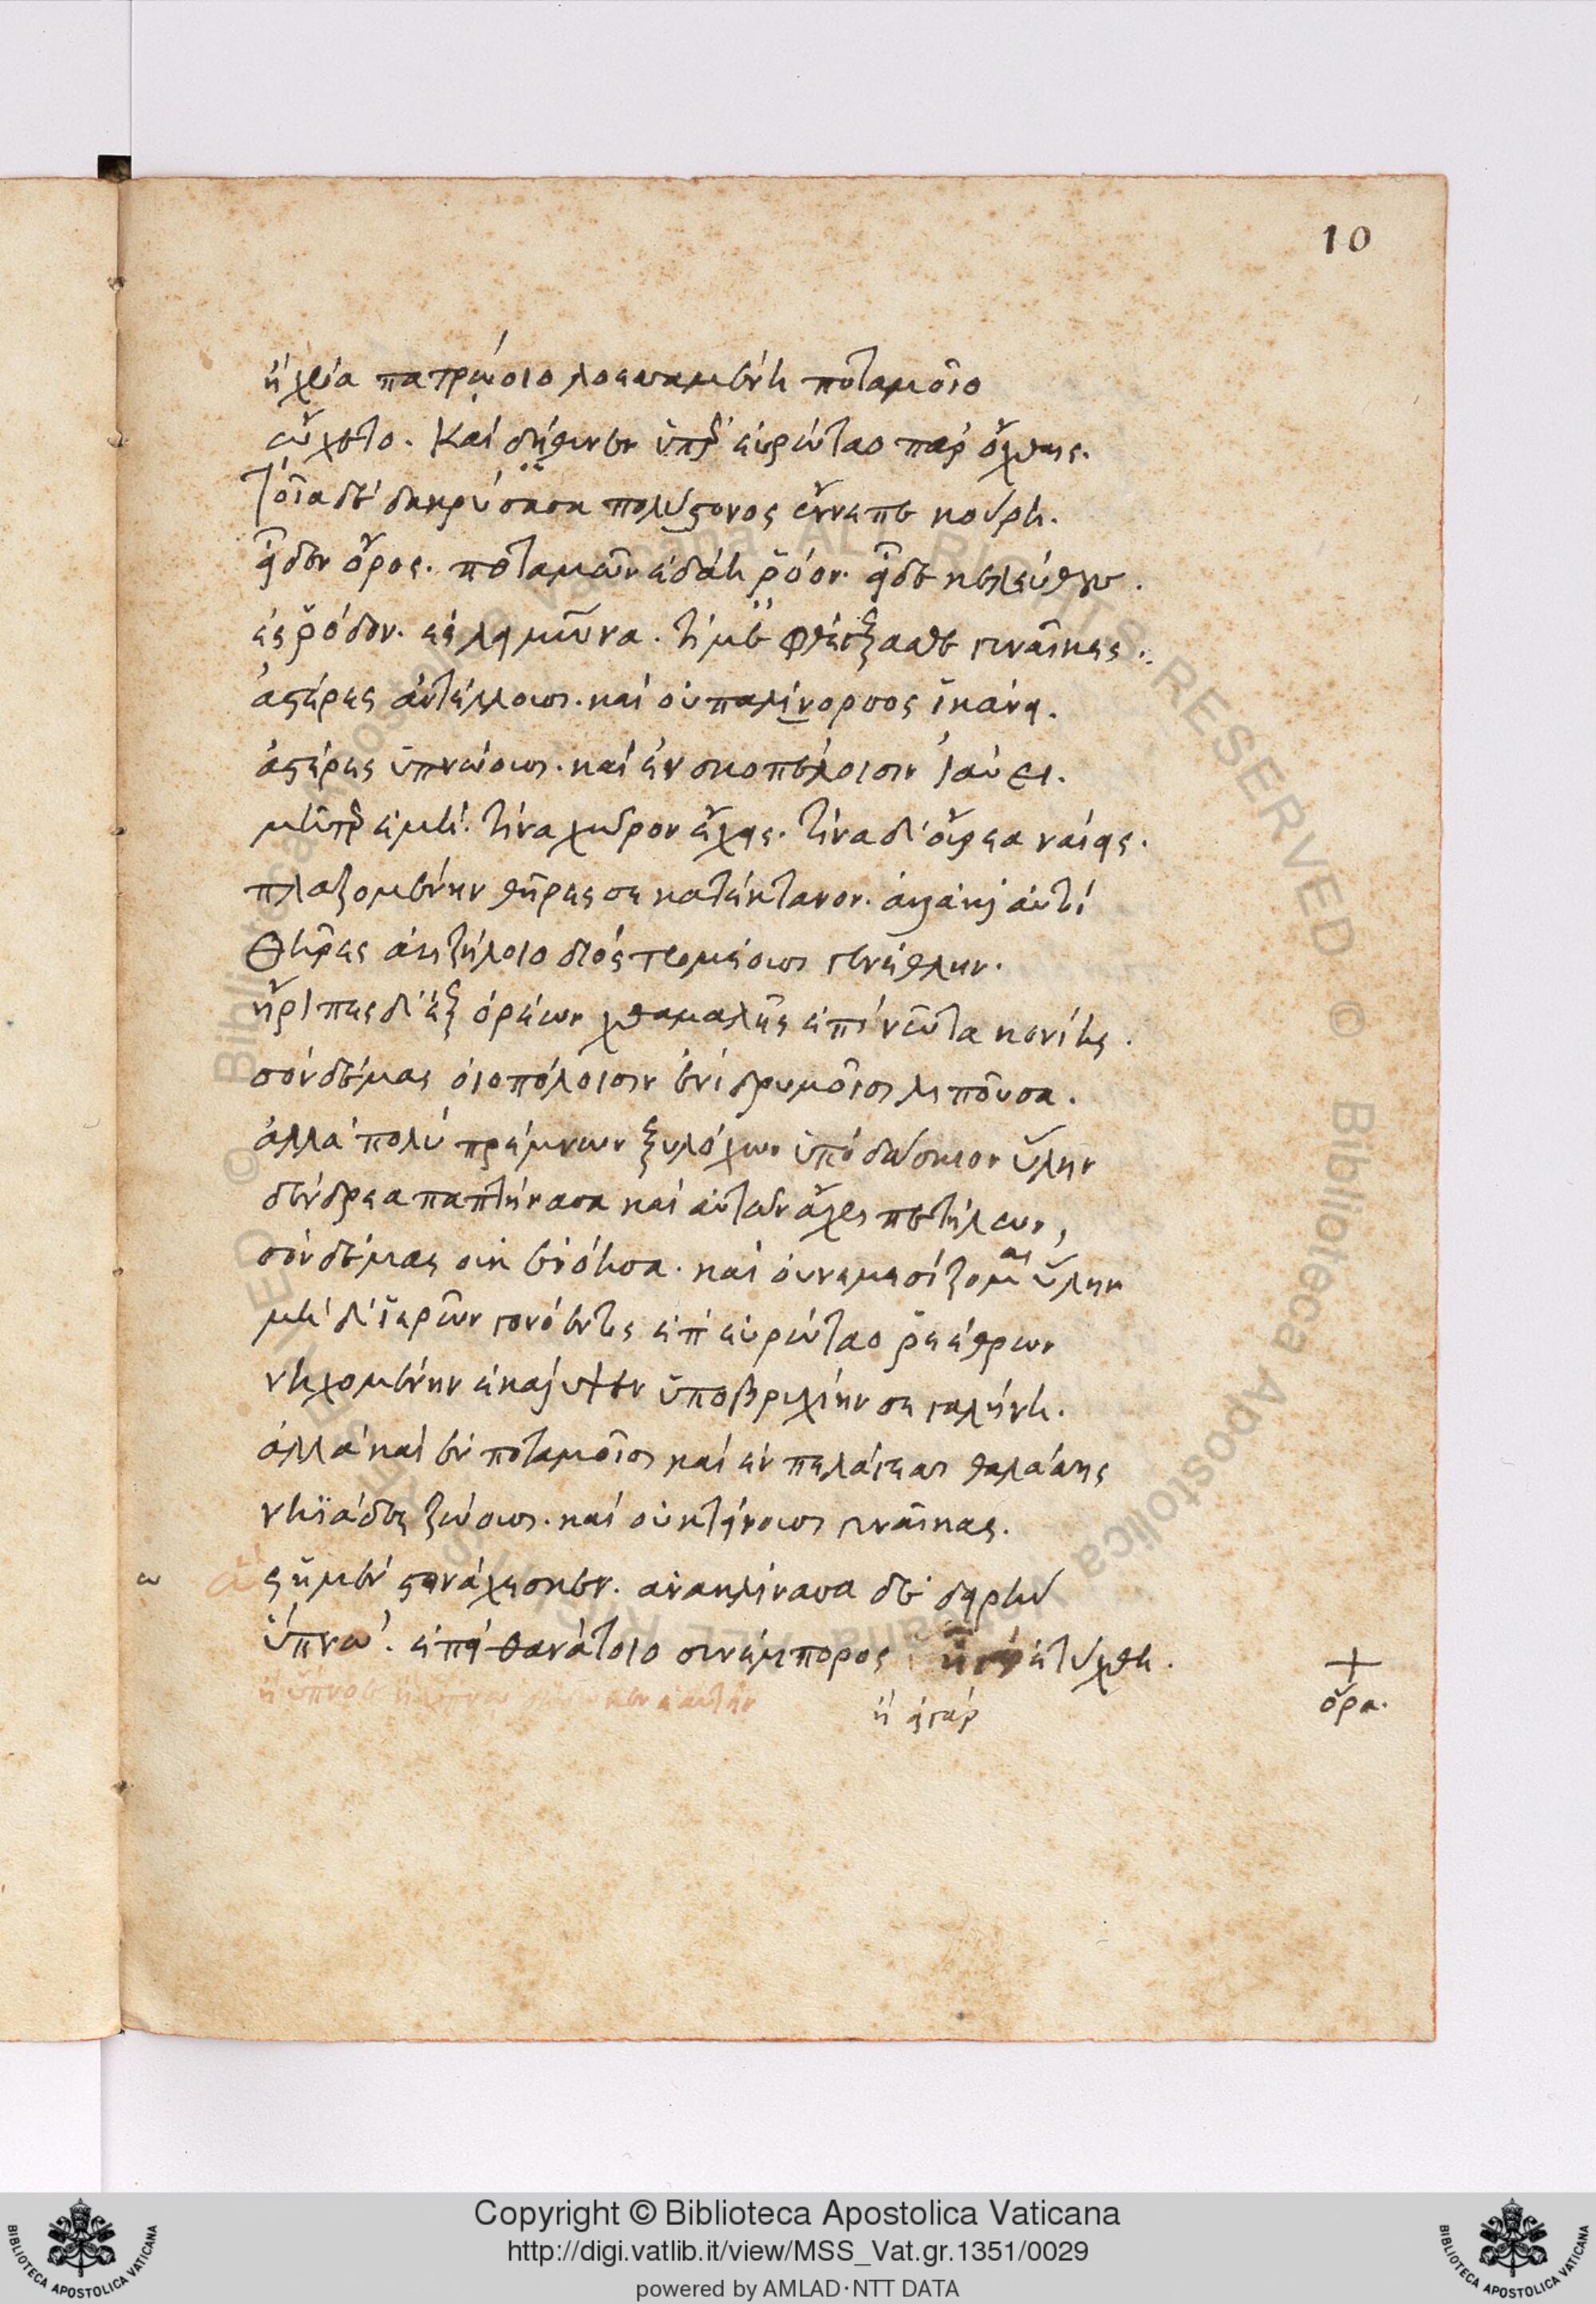 10
ἠ χεία πατρώοιο λοεσσαμένη ποταμοῖο
ᾤχετο. καὶ δήθυνεν ὑπὲρ εὐρώταο παρ' ὄχθαις.
Τοῖα δὲ δακρύσασα πολύστονος ἔννεπε κούρη.
οἶδεν ὄρος. ποταμῶν ἐδάη ῥόον. οἶδε κελεύθους.
ἐς ῥόδον. ἐς λειμῶνα. τί με φθέγξασθε γυναῖκες.
ἀστέρες ἀντέλλουσι. καὶ οὐ παλίνορσος ἱκάνει.
ἀστέρες ὑπνώουσι. καὶ ἐν σκοπέλοισιν ἰαύει.
μῆτερ ἐμή. τίνα χῶρον ἔχεις. τίνα δ' οὔρεα ναίεις.
πλαζομένην θῆρές σε κατέκτανον. ἀλλὰ καὶ αὐτοὶ
Θῆρες ἀριζήλοιο διὸς τρομέουσι γενέθλην.
ἤριπες δ' ἐξ ὀρέων χθαμαλῆς ἐπὶ νῶτα κονίης.
σὸν δέμας οἰοπόλοισιν ἐνὶ δρυμοῖσι λιποῦσα.
ἀλλὰ πολυπρέμνων ξυλόχων ὑπὸ δάσκιον ὕλην
δένδρεα παπτήνασα καὶ αὐτῶν ἄχρι πετήλων,
σὸν δέμας οὐκ ἐνόησα. καὶ οὐ νεμεσίζομαι ὕλην
μὴ δ' ἱερῶν γονόεντες ἐπ' εὐρώταο ῥεέθρων
νηχομένην ἐκάλυψεν ὑποβρυχίην σε γαλήνη.
ἀλλὰ καὶ ἐν ποταμοῖσι καὶ ἐν πελάγεσσι θαλάσσης
νηϊάδες ζώουσι. καὶ οὐ κτείνουσι γυναῖκας.
ὣς ἡ μὲν στενάχεσκεν. ἀνακλίνασα δὲ δειρὴν
ὕπνω. ἐπεὶ θανάτοιο συνέμπορος ἐτύχθη.
ἢ εἰ γάρ
ὅρα.
Copyright © Biblioteca Apostolica Vaticana
http://digi.vatlib.it/view/MSS_Vat.gr.1351/0029
powered by AMLAD·NTT DATA
BIBLIOTECA APOSTOLICA VATICANA
BIBLIOTECA APOSTOLICA VATICANA